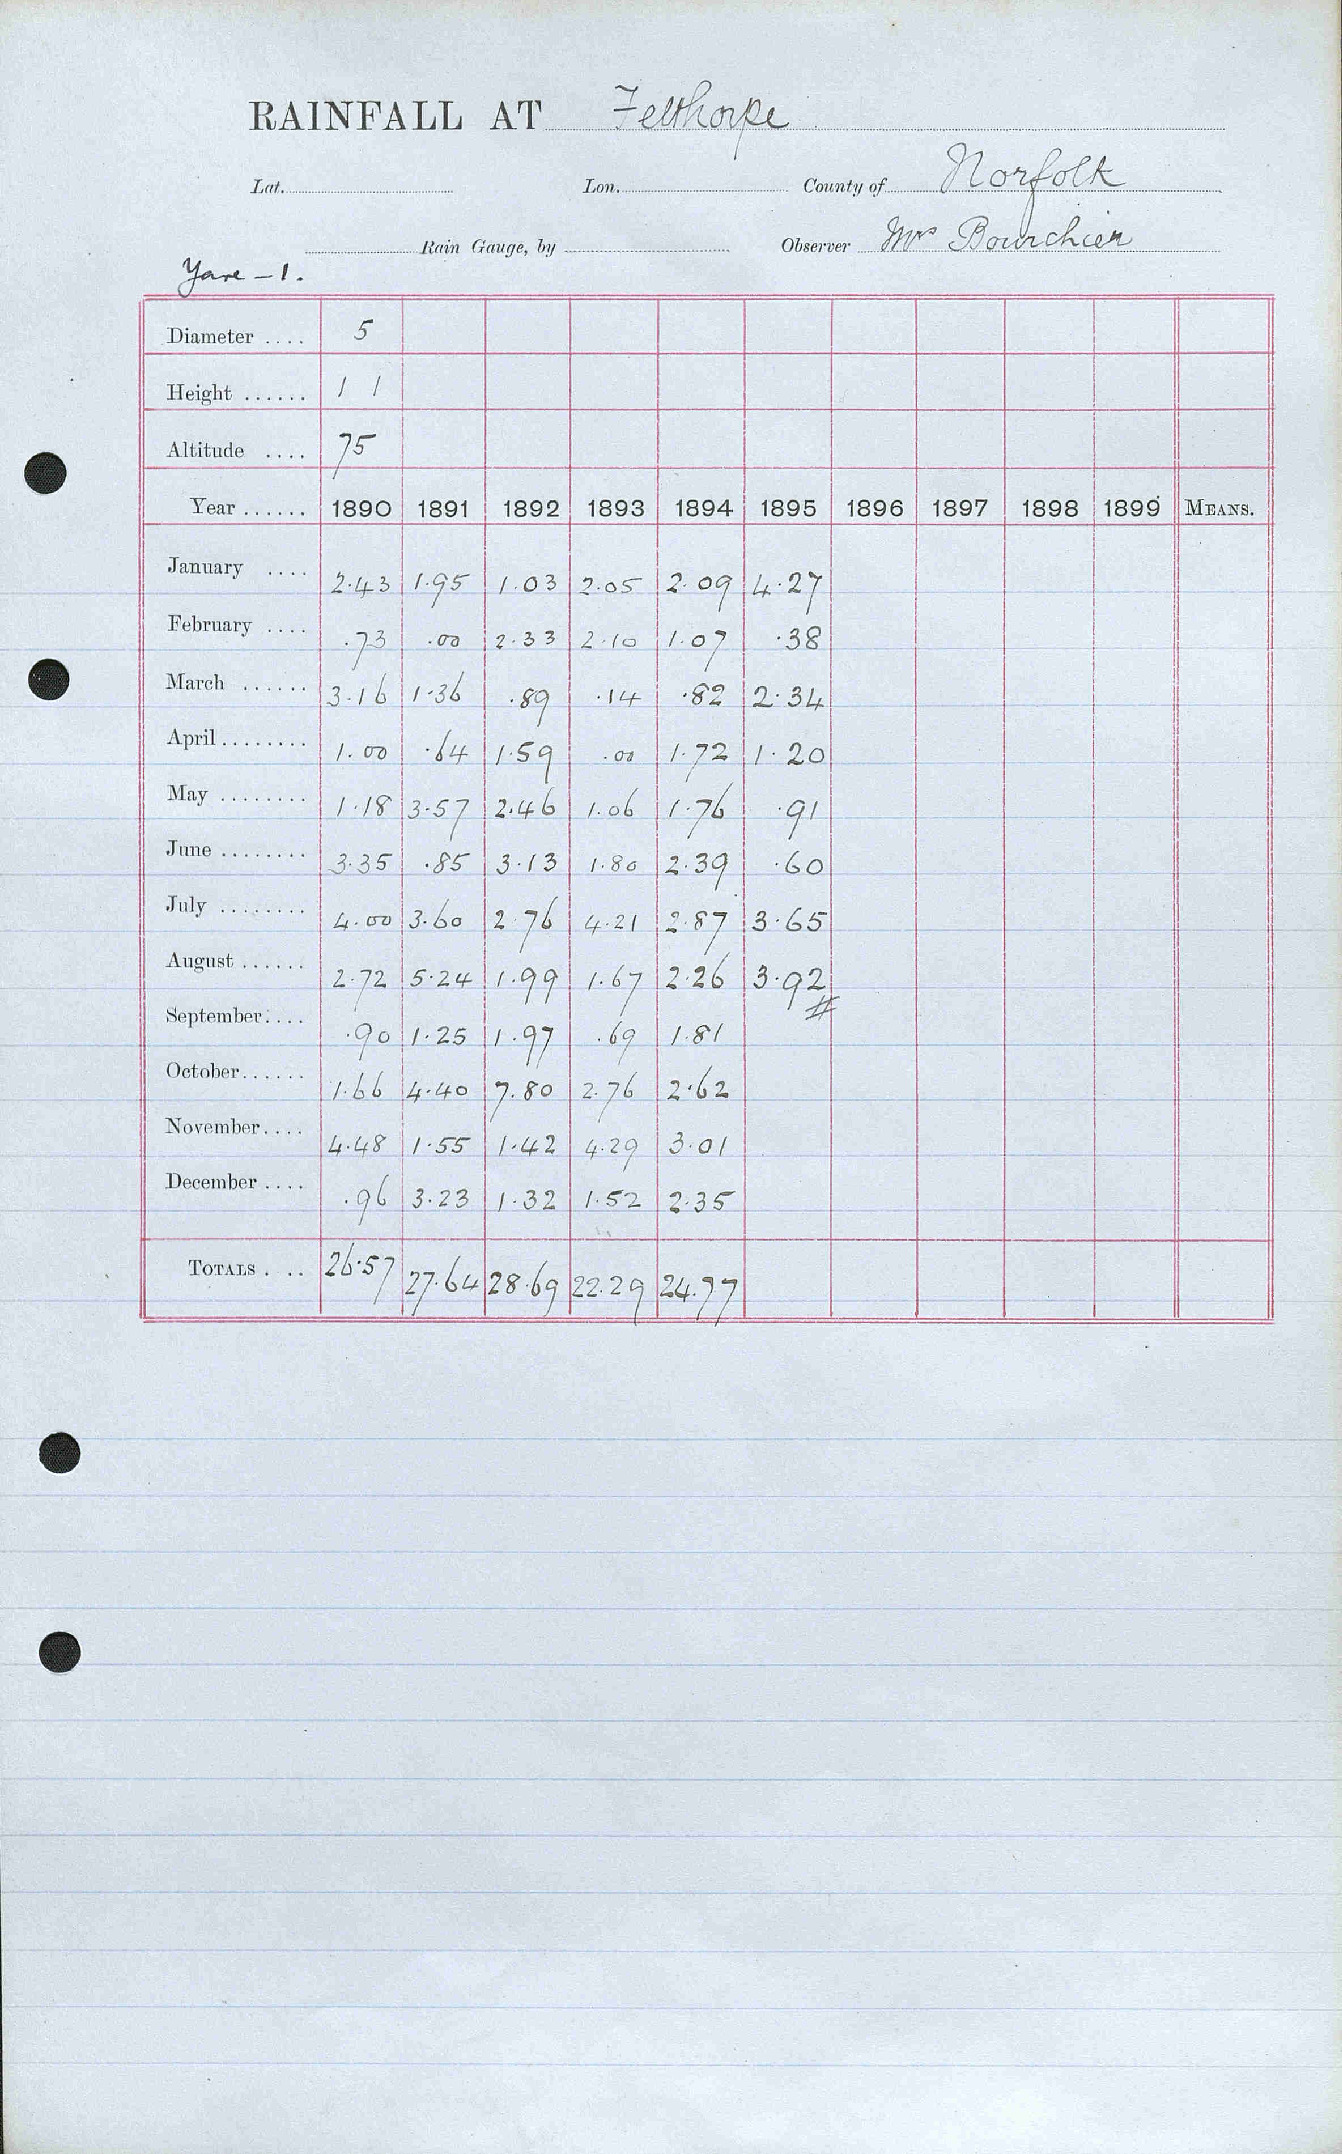 RAINFALL AT Felthorpe
Lat. Lon. County of Norfolk
Rain Gauge, by Observer Mrs Bourchier
Yare - 1.
Diameter .... 5
Height ...... 1 1
Altitude .... 75
Year ...... 1890 1891 1892 1893 1894 1895 1896 1897 1898 1899 MEANS.
January .... 2.43 1.95 1.03 2.05 2.09 4.27
February .... .73 .00 2.33 2.10 1.07 .38
March ...... 3.16 1.36 .89 .14 .82 2.34
April ........ 1.00 .64 1.59 .00 1.72 1.20
May ........ 1.18 3.57 2.46 1.06 1.76 .91
June ........ 3.35 .85 3.13 1.80 2.39 .60
July ........ 4.00 3.60 2.76 4.21 2.87 3.65
August ...... 2.72 5.24 1.99 1.67 2.26 3.92
September .... .90 1.25 1.97 .69 1.81
October ...... 1.66 4.40 7.80 2.76 2.62
November .... 4.48 1.55 1.42 4.29 3.01
December .... .96 3.23 1.32 1.52 2.35
TOTALS . .. 26.57 27.64 28.69 22.29 24.77